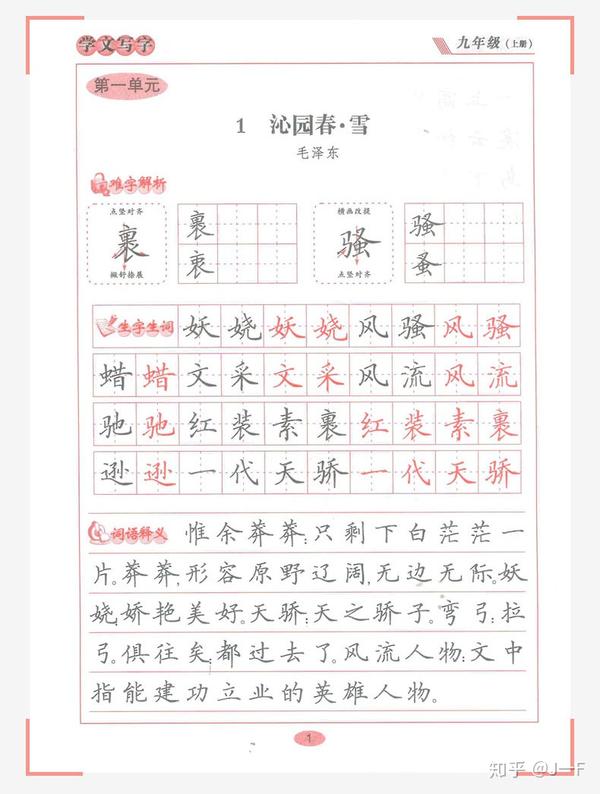 学文写字
九年级（上册）
第一单元
1 沁园春·雪
毛泽东
难字解析
点竖对齐
裹
撇舒捺展
裹
衷
横画改提
骚
点竖对齐
骚
蚤
生字生词 妖娆妖娆风骚风骚
蜡蜡文采文采风流风流
驰驰红装素裹红装素裹
逊逊一代天骄一代天骄
词语释义 惟余莽莽:只剩下白茫茫一
片。莽莽,形容原野辽阔,无边无际。妖
娆:娇艳美好。天骄:天之骄子。弯弓:拉
弓。俱往矣:都过去了。风流人物:文中
指能建功立业的英雄人物。
1
知乎 @J一F